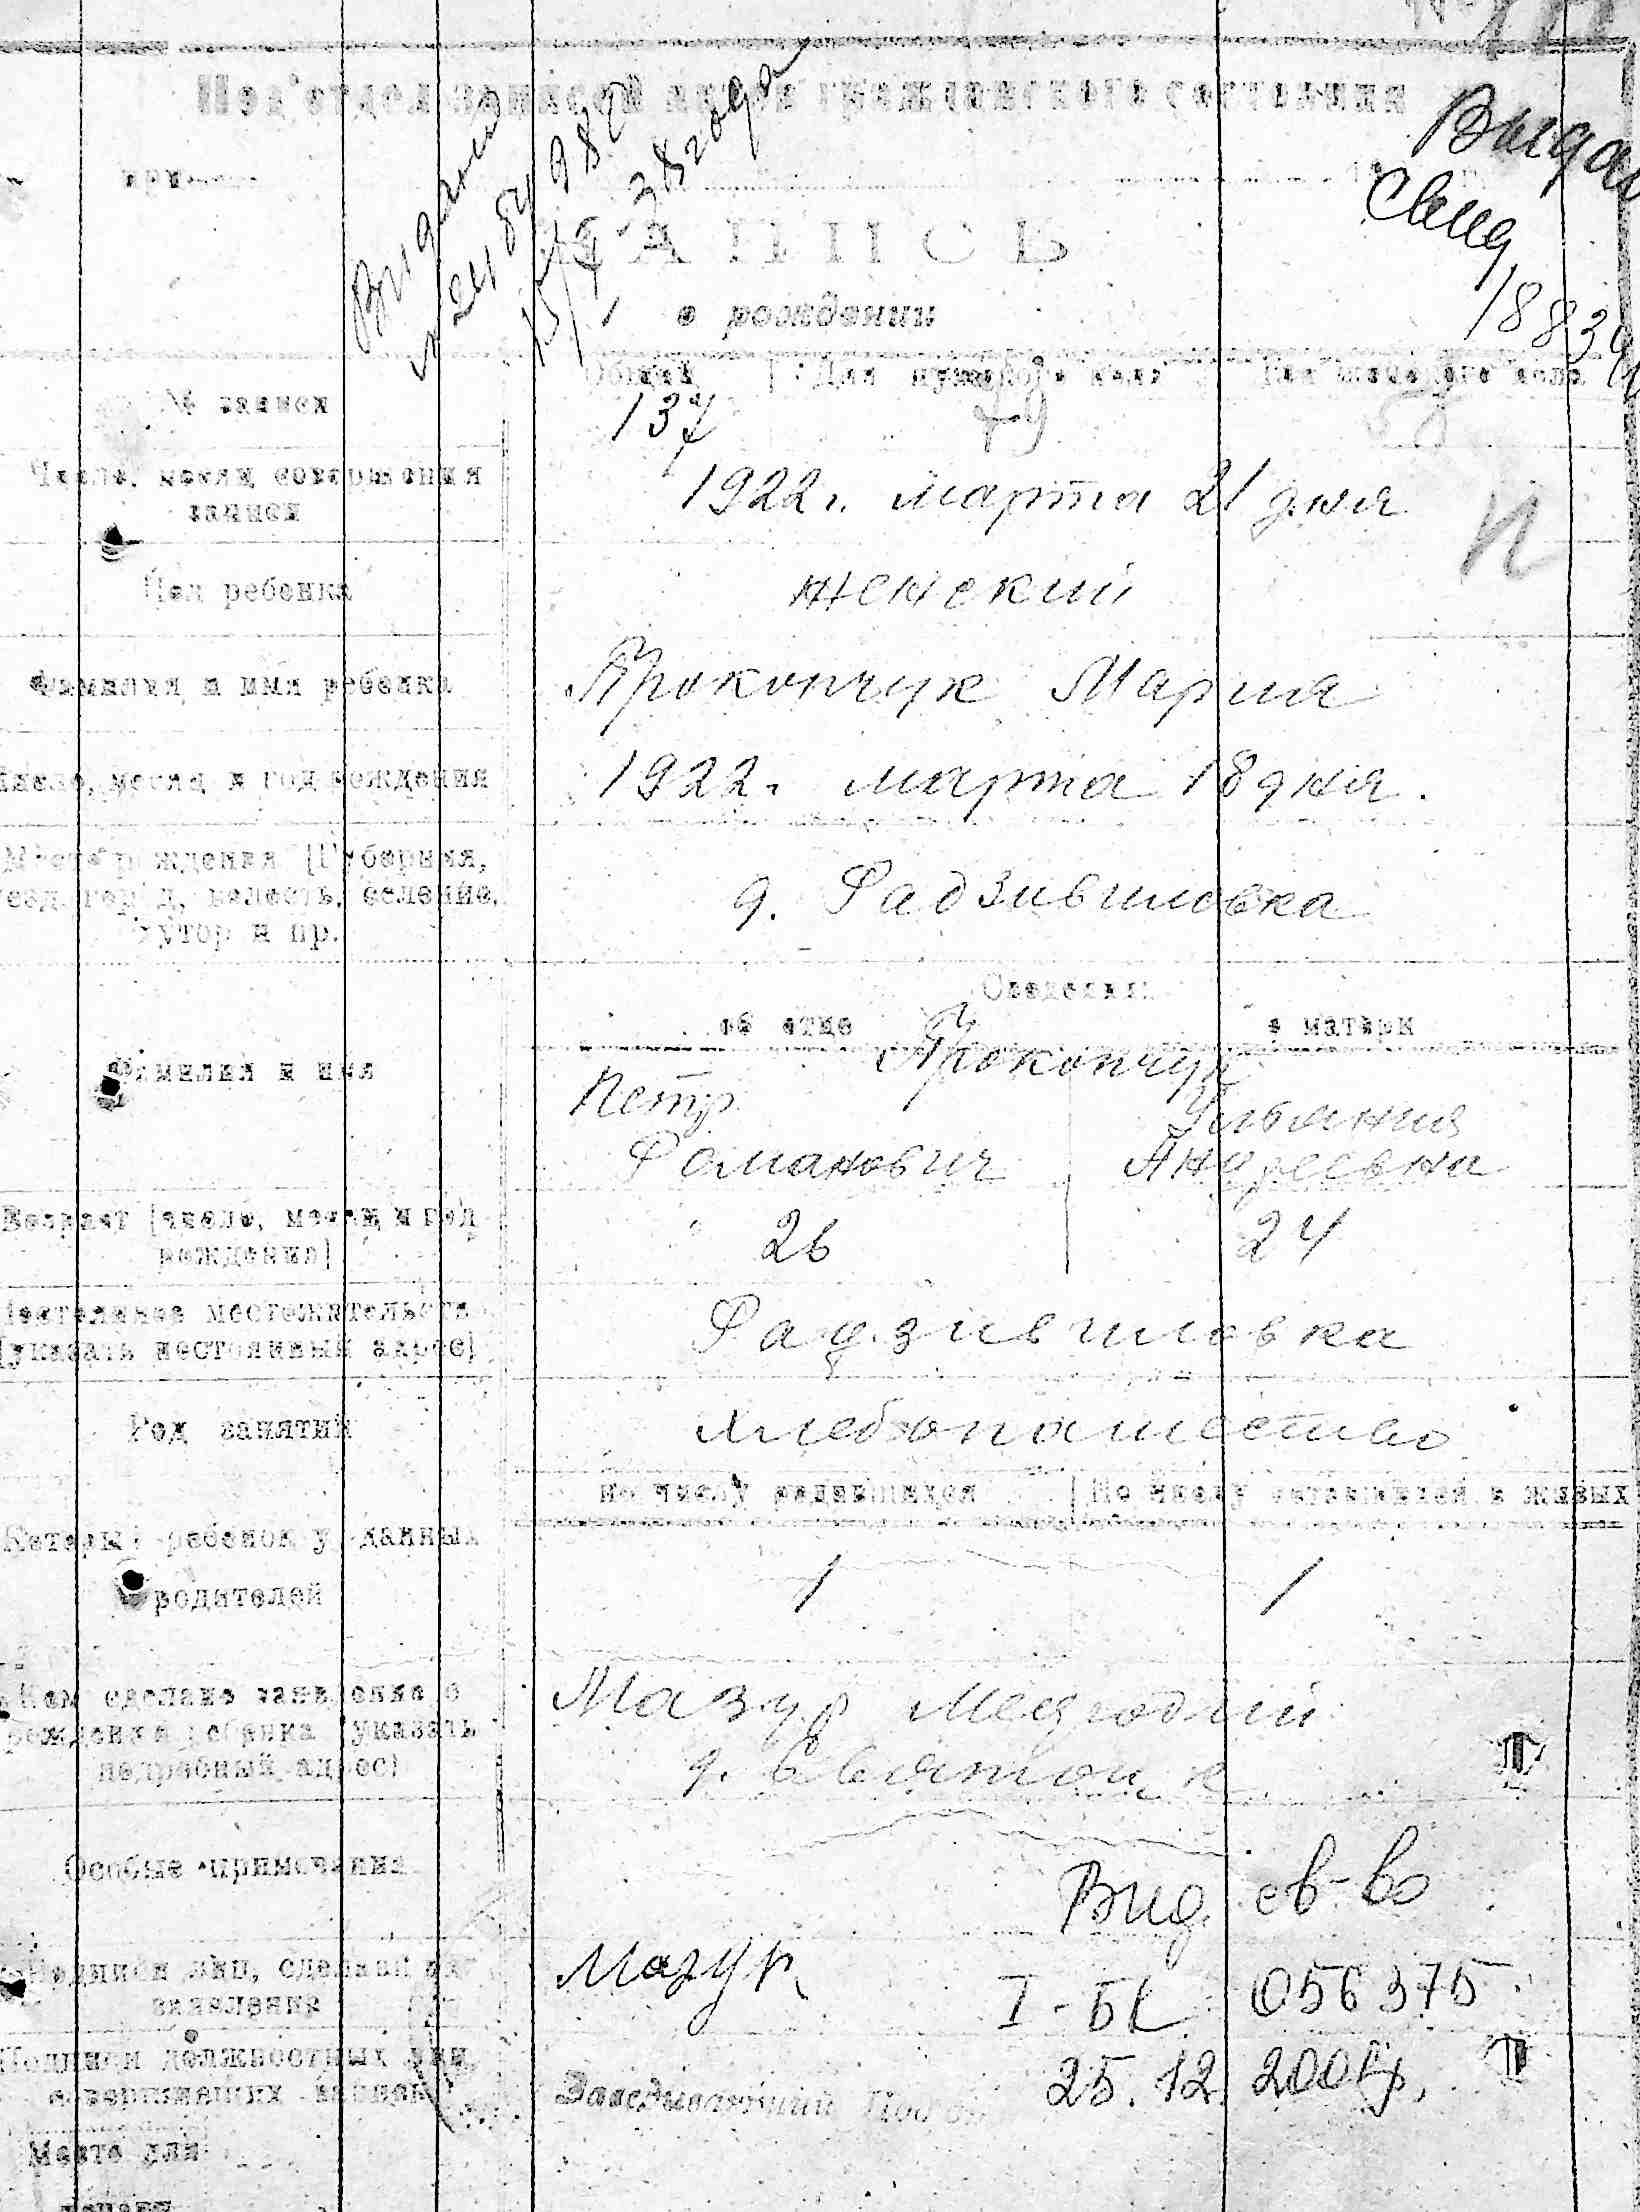 Под'отдел записей актов гражданского состояния
Выдан
свид
ЗАПИСЬ
о рождении
Общий Для мужского пола Для женского пола
№ записи
137
Число, месяц совершения
записи
1922 г. марта 21 дня
Пол ребенка
женский
Фамилия и имя ребенка
Прокопчук Мария
Число, месяц и год рождения
1922 г. марта 18 дня.
Место рождения (Губерния,
уезд, город, волость, селение,
хутор и пр.
д. Радзивиловка
Сведения
об отце о матери
Прокопчук
Фамилия и имя
Петр Ульяния
Романович Андреевна
Возраст (число, месяц и год
рождения)
26 24
Постоянное местожительство
(указать постоянный адрес)
Радзивиловка
Род занятий
Хлебопашество
по числу родившихся По числу оставшихся в живых
Который ребенок у данных
родителей
1 1
Кем сделано заявление о
рождении ребенка (указать
подробный адрес)
Мазур
д.
Особые примечания
Вид. св-во
Подписи лиц, сделавших
заявления
Мазур
I-БК 056375
Подписи должностных лиц,
совершивших записи
Заведывающий Под
25.12.2001р.
Место для
печати